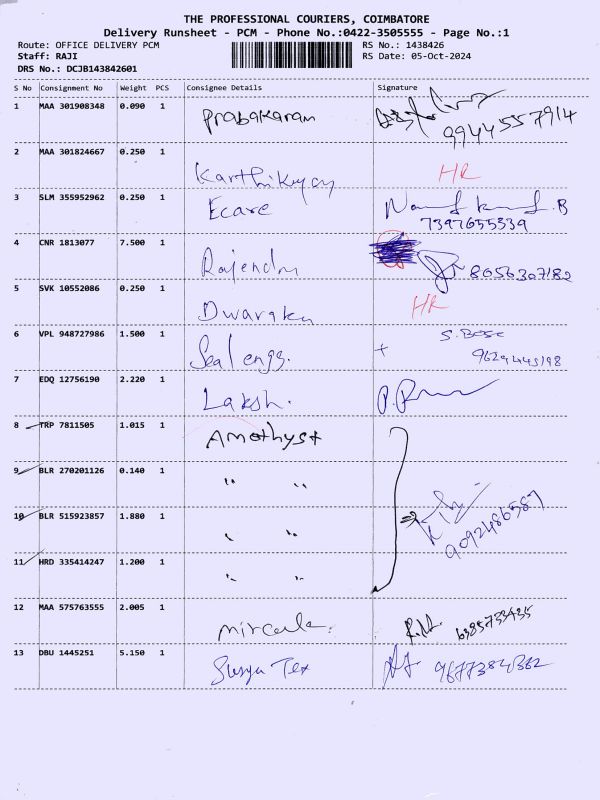 THE PROFESSIONAL COURIERS, COIMBATORE
Delivery Runsheet - PCM - Phone No.:0422-3505555 - Page No.:1
Route: OFFICE DELIVERY PCM RS No.: 1438426
Staff: RAJI RS Date: 05-Oct-2024
DRS No.: DCJB143842601
S No Consignment No Weight PCS Consignee Details Signature
1 MAA 301908348 0.090 1 Prabakaran 9944557914
2 MAA 301824667 0.250 1 Karthikeyan HR
3 SLM 355952962 0.250 1 Ecare 7397655339
4 CNR 1813077 7.500 1 Rajendra 8056307182
5 SVK 10552086 0.250 1 Dwaraka HR
6 VPL 948727986 1.500 1 Seal engg. S. Bose
9629445198
7 EDQ 12756190 2.220 1 Laksh.
8 TRP 7811505 1.015 1 Amethyst
9 BLR 270201126 0.140 1 " "
10 BLR 515923857 1.880 1 " " 9092486587
11 HRD 335414247 1.200 1 " "
12 MAA 575763555 2.005 1 6385733435
13 DBU 1445251 5.150 1 Surya Tex 9677384362